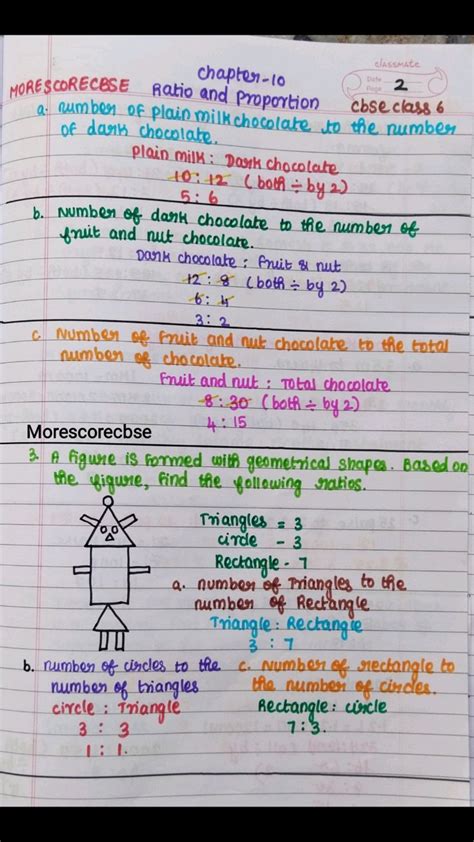 classmate
Date
Page 2
chapter-10
MORESCORECBSE Ratio and Proportion cbse class 6
a. number of plain milk chocolate to the number
of dark chocolate.
Plain milk : Dark chocolate
10 : 12 (both ÷ by 2)
5 : 6
b. Number of dark chocolate to the number of
fruit and nut chocolate.
Dark chocolate : Fruit & nut
12 : 8 (both ÷ by 2)
6 : 4
3 : 2
c. Number of Fruit and nut chocolate to the total
number of chocolate.
Fruit and nut : Total chocolate
8 : 30 (both ÷ by 2)
4 : 15
Morescorecbse
3. A figure is formed with geometrical shapes. Based on
the figure, find the following ratios.
Triangles = 3
circle - 3
Rectangle - 7
a. number of Triangles to the
number of Rectangle
Triangle : Rectangle
3 : 7
b. number of circles to the
number of triangles
circle : Triangle
3 : 3
1 : 1.
c. Number of rectangle to
the number of circles.
Rectangle : circle
7 : 3.